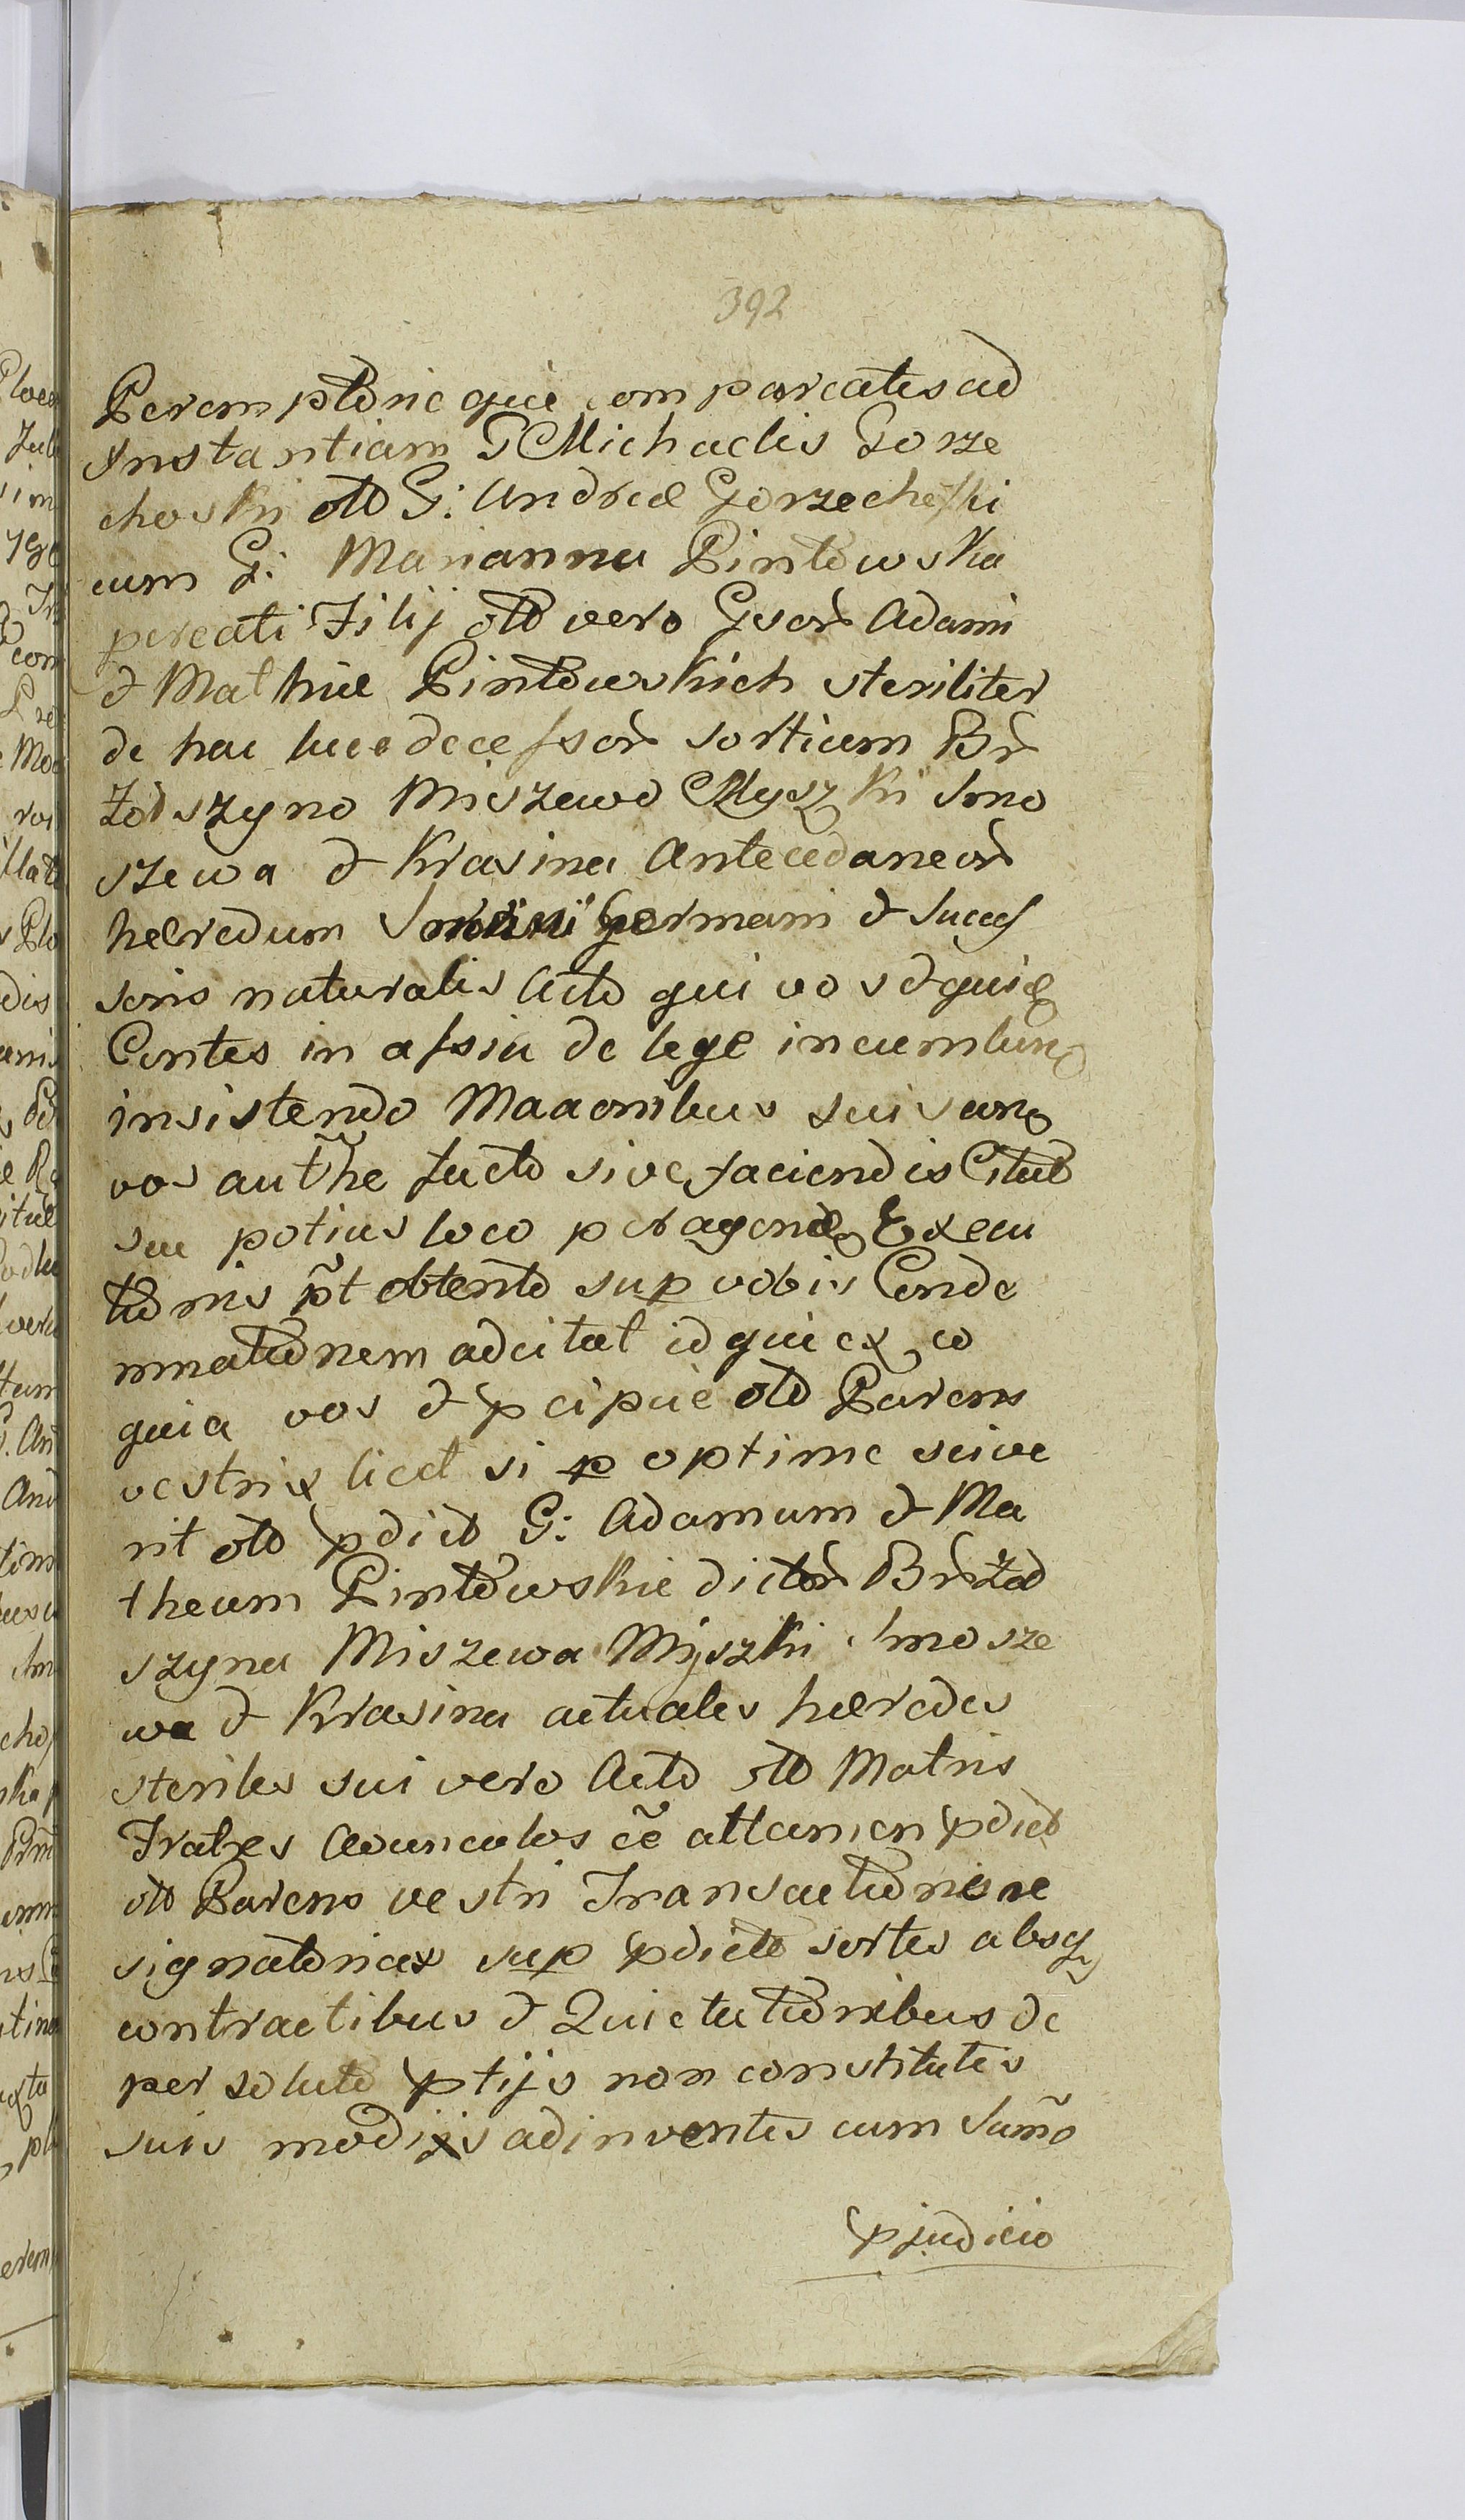 392
Peremptorie que compareatis ad
Instantiam G Michaelis Gorze
choski olo G: Andreæ Gorzecheski
cum G: Marianna Pintowska
pcreati Filij olo vero Gsor Adami
& Mathiæ Pintowskich steriliter
de hac luce decessor sortium Br
Zodszyno Miszewo Myszki Smo
szewa & Krasina Antecedaneor
hæredum Germani & Succes
soris naturalis Acto qui vos
Centes in assia de lege incumben
insistendo Maaonibus suis con
vos authe facto sive faciendis Citat
suo potius loco peragend Execu
tionis pt obtento sup vobis Conde
mnationem adcitat idque ex eo
quia vos & pcipue olo Parens
vestrix licet si p optime scive
rit olo pdict G: Adamum & Ma
theum Pintowskie dictor Br Zod
szyna Miszewa Myszki Smosze
wa & Krasina actuales hæredes
steriles sui vero Acto olo Matris
Fratres Avunculos ee attamen pdict
olo Parens vestri Transactiones re
signatorias sup pdicto sortes absq
contractibus & Quietationibus de
per soluto ptijs non constitutis
suis modijs adinventis cum Sumo
pjudicio